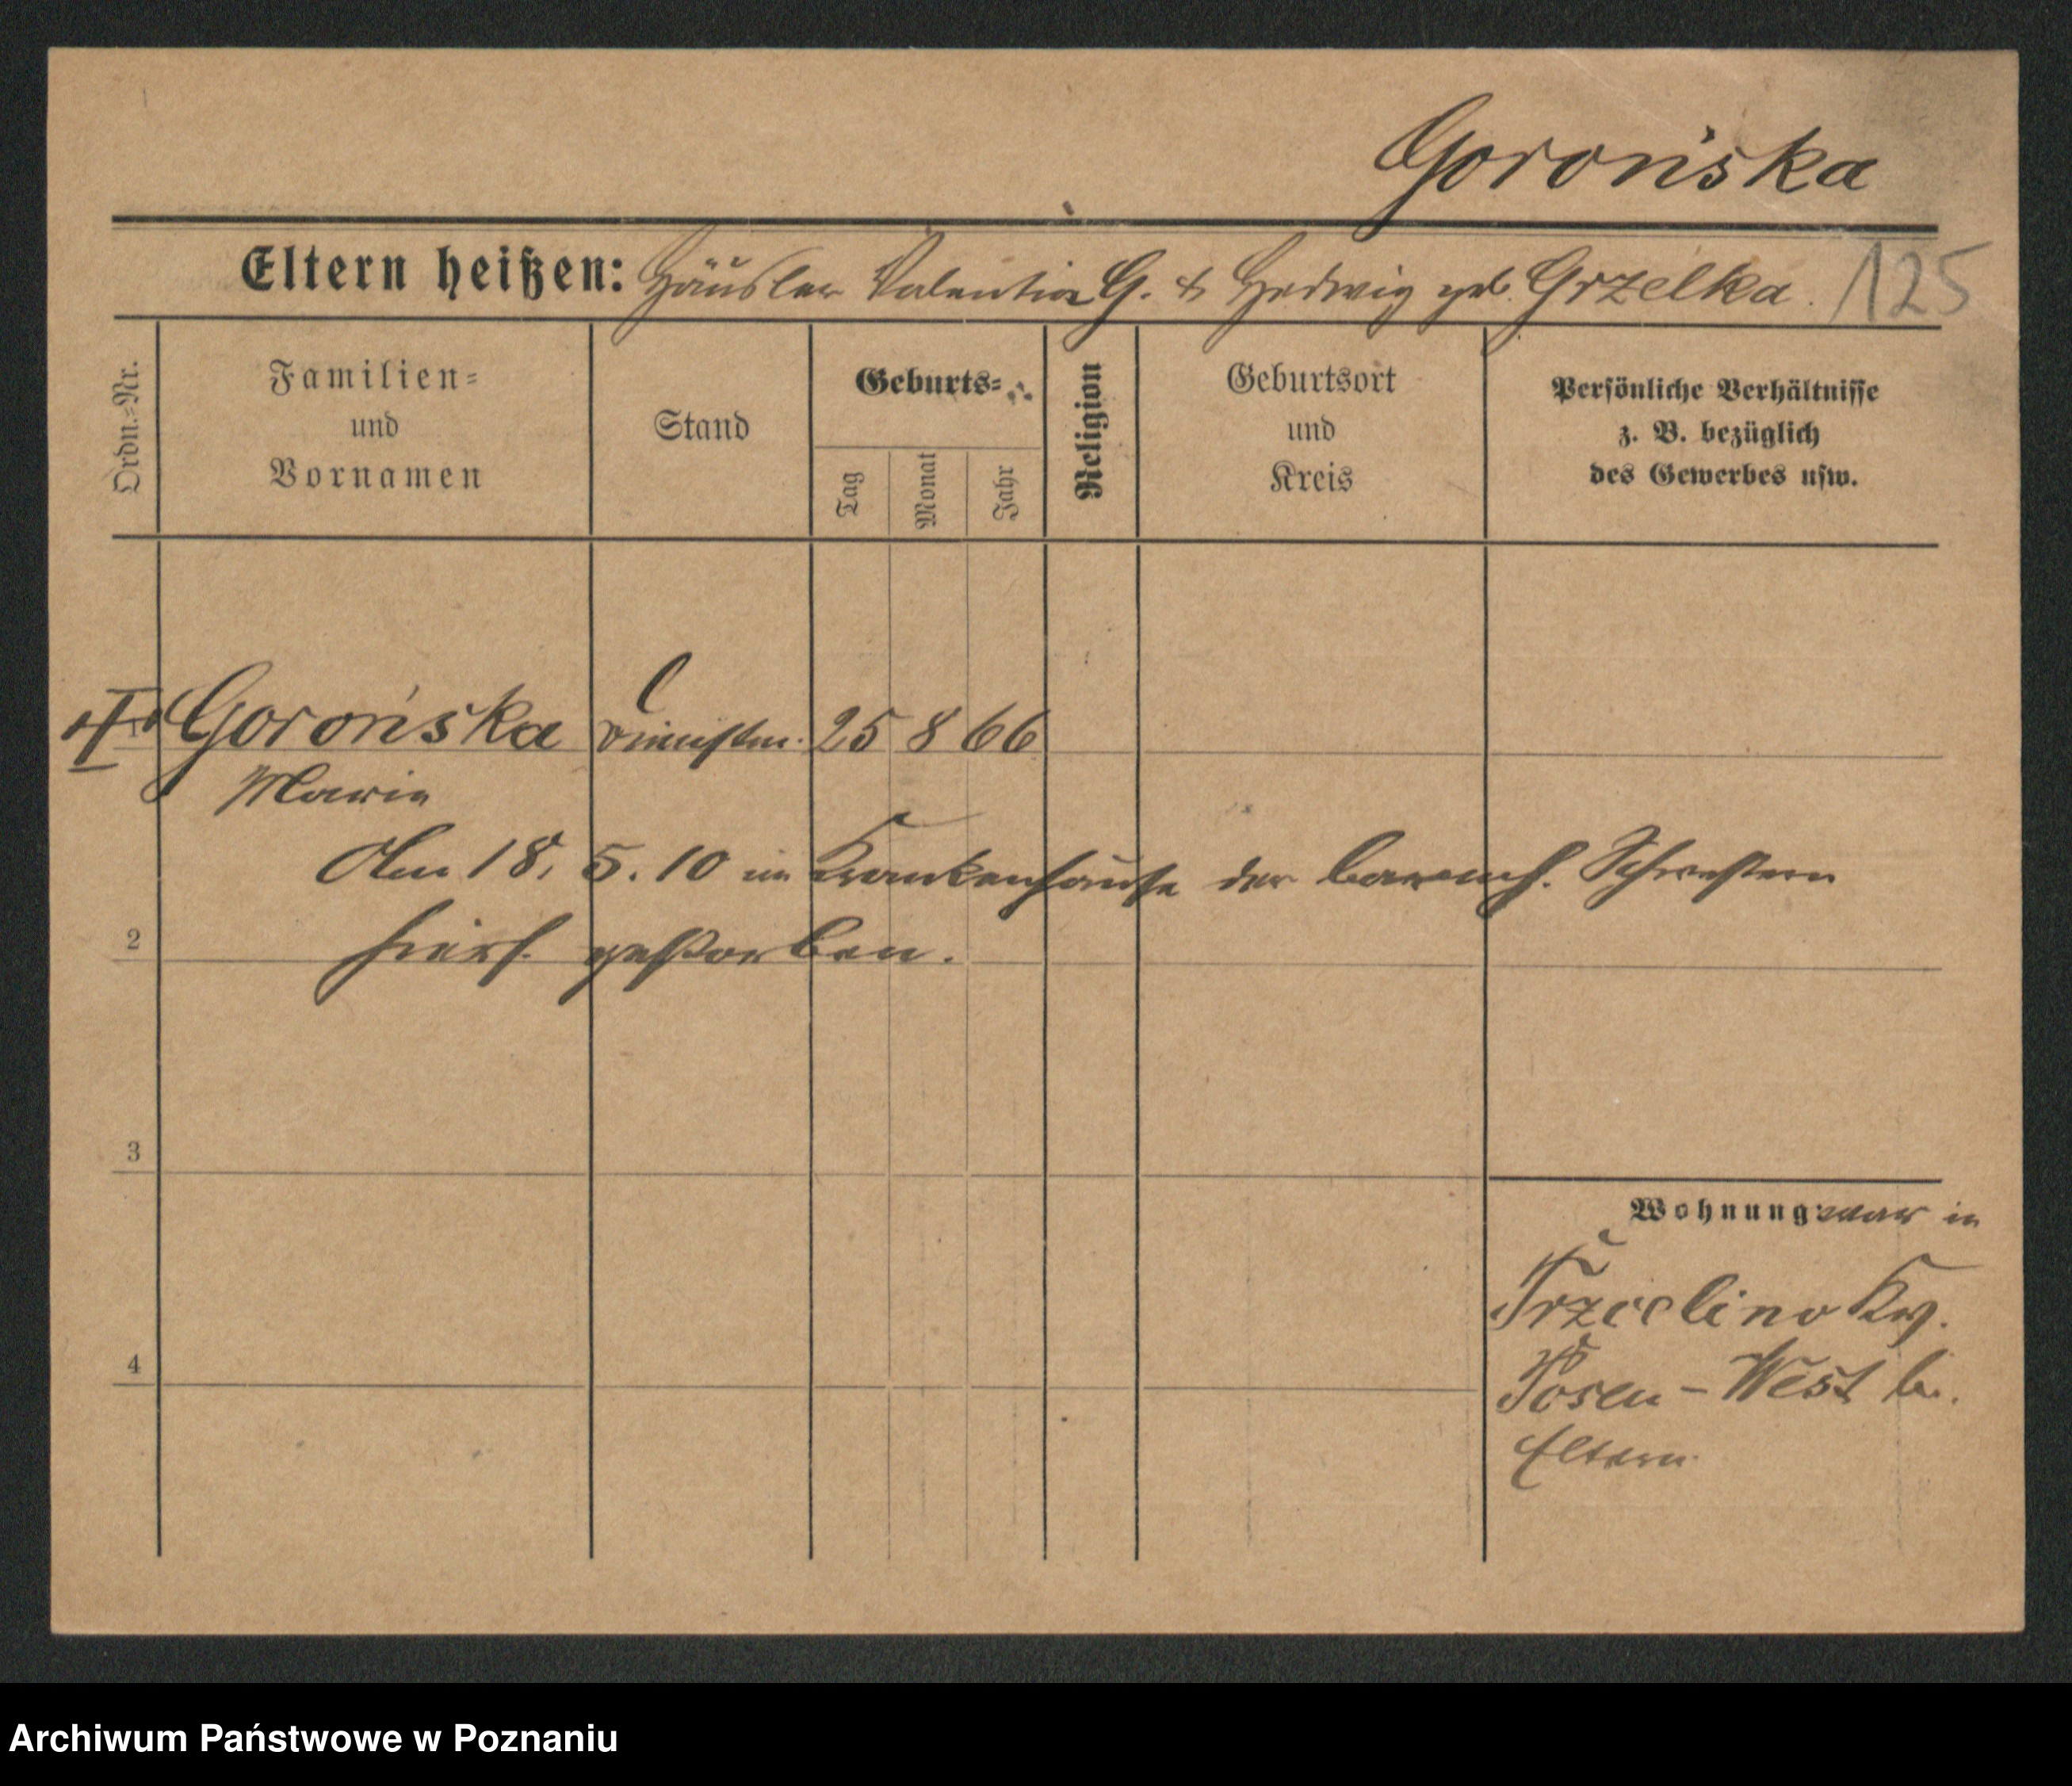 Gorońska
Eltern heißen: Häusler Valentin G. & Hedwig geb. Grzelka. 125
Ordn.=Nr.
Familien=
und
Vornamen
Stand
Geburts=
Tag
Monat
Jahr
Religion
Geburtsort
und
Kreis
Persönliche Verhältnisse
z. B. bezüglich
des Gewerbes usw.
1 Gorońska 25 8 66
Marie
Am 18. 5. 10 im Krankenhause der barmh. Schwestern
2 hiers. gestorben.
3
Wohnung: war in
Trzcelino Kr.
4 Posen-West b.
Eltern.
Archiwum Państwowe w Poznaniu